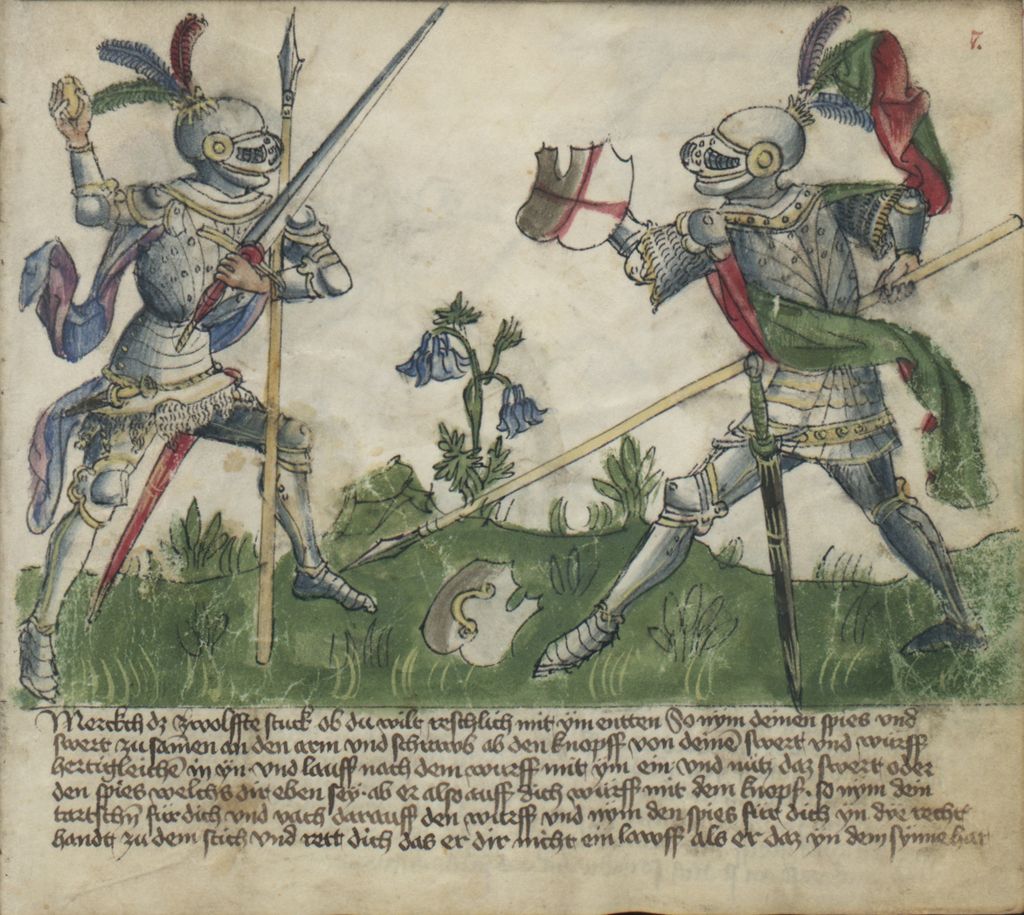 7.
Merckch dz zwolffte stuck ob du wilt reschlich mit ym entten So nym deinen spies vnd
swert zu samen an den arm vnd schrawb ab den knopff von deinē swert vnd würff
hertigleichē in yn vnd lauff nach dem wurff mit ym ein vnd nütz daz swert oder
den spies welchs dir eben sey. ob er also auff dich würff mit dem knopf. so nym dein
tartschn̄ für dich vnd vach darauff den wurff vnd nym den spies für dich yn dye recht
handt zu dem stich vnd rett dich das er dir nicht ein lawff als er daz yn dem synne hat